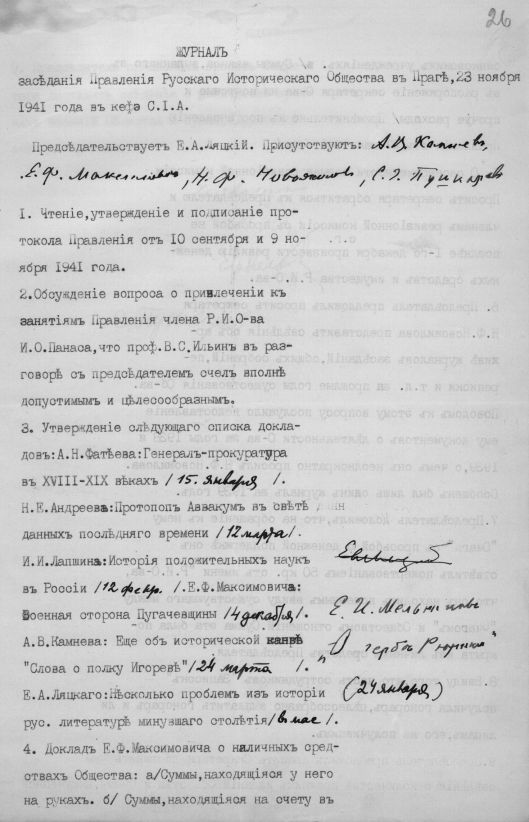 26
ЖУРНАЛЪ
засѣданія Правленія Русскаго Историческаго Общества въ Прагѣ, 23 ноября
1941 года въ кефэ С.І.А.
Предсѣдательствует Е.А.Ляцкій. Присутствуютъ: А.В. Камневъ,
Е.Ф. Максимовичъ, Н.Ф. Новожиловъ, С.Г. Пушкаревъ
I. Чтеніе, утвержденіе и подписаніе про-
токола Правленія отъ 10 сентября и 9 но-
ября 1941 года.
2.Обсужденіе вопроса о привлеченіи къ
занятіямъ Правленія члена Р.И.О-ва
И.О.Панаса, что проф.В.С.Ильинъ въ раз-
говорѣ съ предсѣдателем счелъ вполнѣ
допустимымъ и цѣлесообразнымъ.
3. Утвержденіе слѣдующаго списка докла-
довъ:А.Н.Фатѣева:Генералъ-прокуратура
въ XVIII-XIX вѣкахъ / 15. января /.
Н.Е.Андреева:Протопопъ Аввакумъ въ свѣтѣ
данныхъ послѣдняго времени /12 марта/.
И.И.Лапшина:Исторія положительныхъ наукъ
въ Россіи /12 февр. /.Е.Ф.Максимовича:
Военная сторона Пугачевщини /4 декабря/. Е.И. Мельниковъ
А.В.Камнева: Еще объ исторической канвѣ "О гербѣ
"Слова о полку Игоревѣ" /24 марта /.
Е.А.Ляцкаго:Нѣсколько проблем изъ исторіи (24 января)
рус. литературѣ минувшаго столѣтія /въ маѣ /.
4. Докладъ Е.Ф.Максимовича о наличныхъ сред-
ствахъ Общества: а/Суммы,находящіяся у него
на рукахъ. б/ Суммы,находящіяся на счету въ